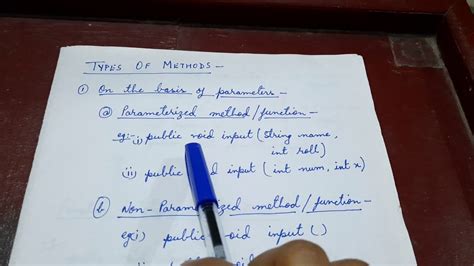 TYPES OF METHODS -
① On the basis of parameters -
ⓐ Parameterized method/function -
eg:- i) public void input (String name,
int roll)
ii) public input (int num, int x)
ⓑ Non-Parameterized method/function -
eg: i) public input ()